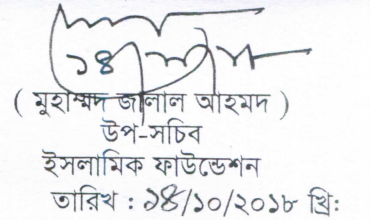 ( মুহাম্মদ জালাল আহমদ )
উপ-সচিব
ইসলামিক ফাউন্ডেশন
তারিখ : ১৪/১০/২০১৮ খ্রি: